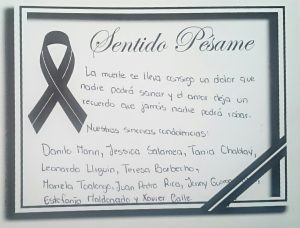 Sentido Pésame
La muerte se lleva consigo un dolor que
nadie podrá sanar y el amor deja un
recuerdo que jamás nadie podrá robar.
Nuestras sinceras condolencias:
Danilo Marin, Jessica Salamea, Tania
Leonardo Lliguin, Teresa Barbecho,
Mariela Toalongo, Juan Pedro Rios, Jenny
Estefania Maldonado y Xavier Calle